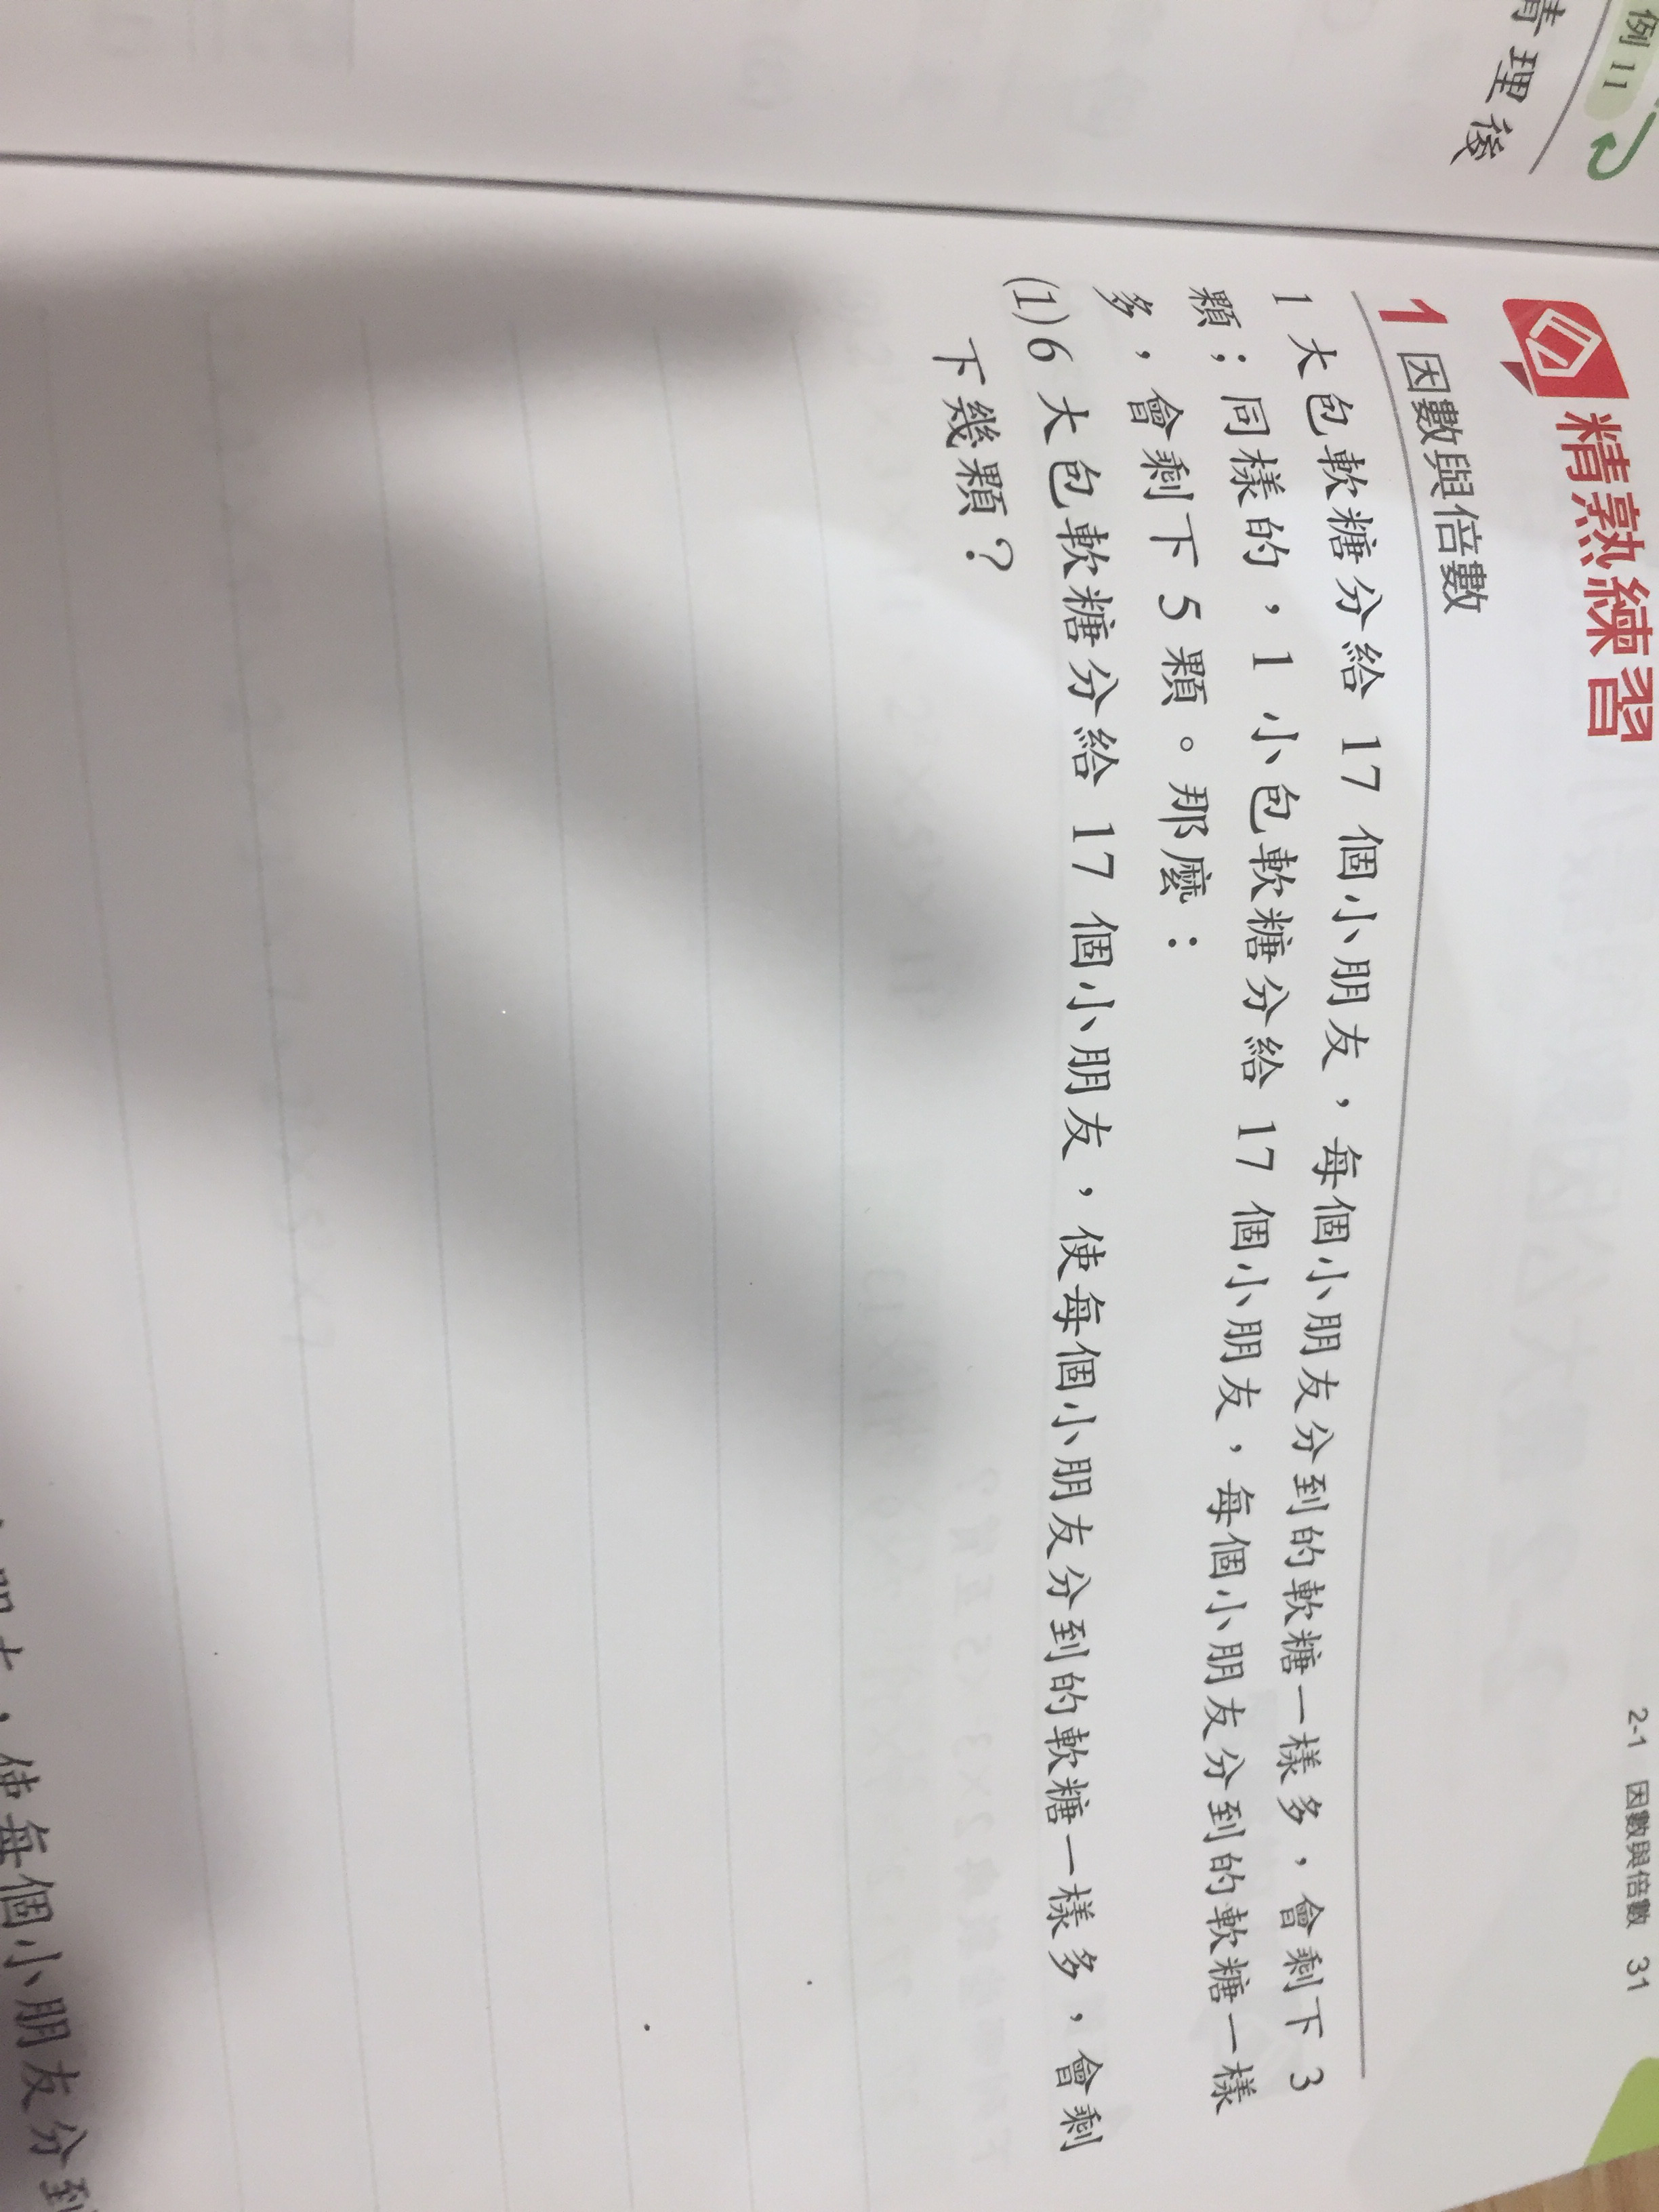 例 11
清理後
2-1 因數與倍數 31
精熟練習
1 因數與倍數
1 大包軟糖分給 17 個小朋友，每個小朋友分到的軟糖一樣多，會剩下 3
顆；同樣的，1 小包軟糖分給 17 個小朋友，每個小朋友分到的軟糖一樣
多，會剩下 5 顆。那麼：
(1)6 大包軟糖分給 17 個小朋友，使每個小朋友分到的軟糖一樣多，會剩
下幾顆？
朋友，使每個小朋友分到